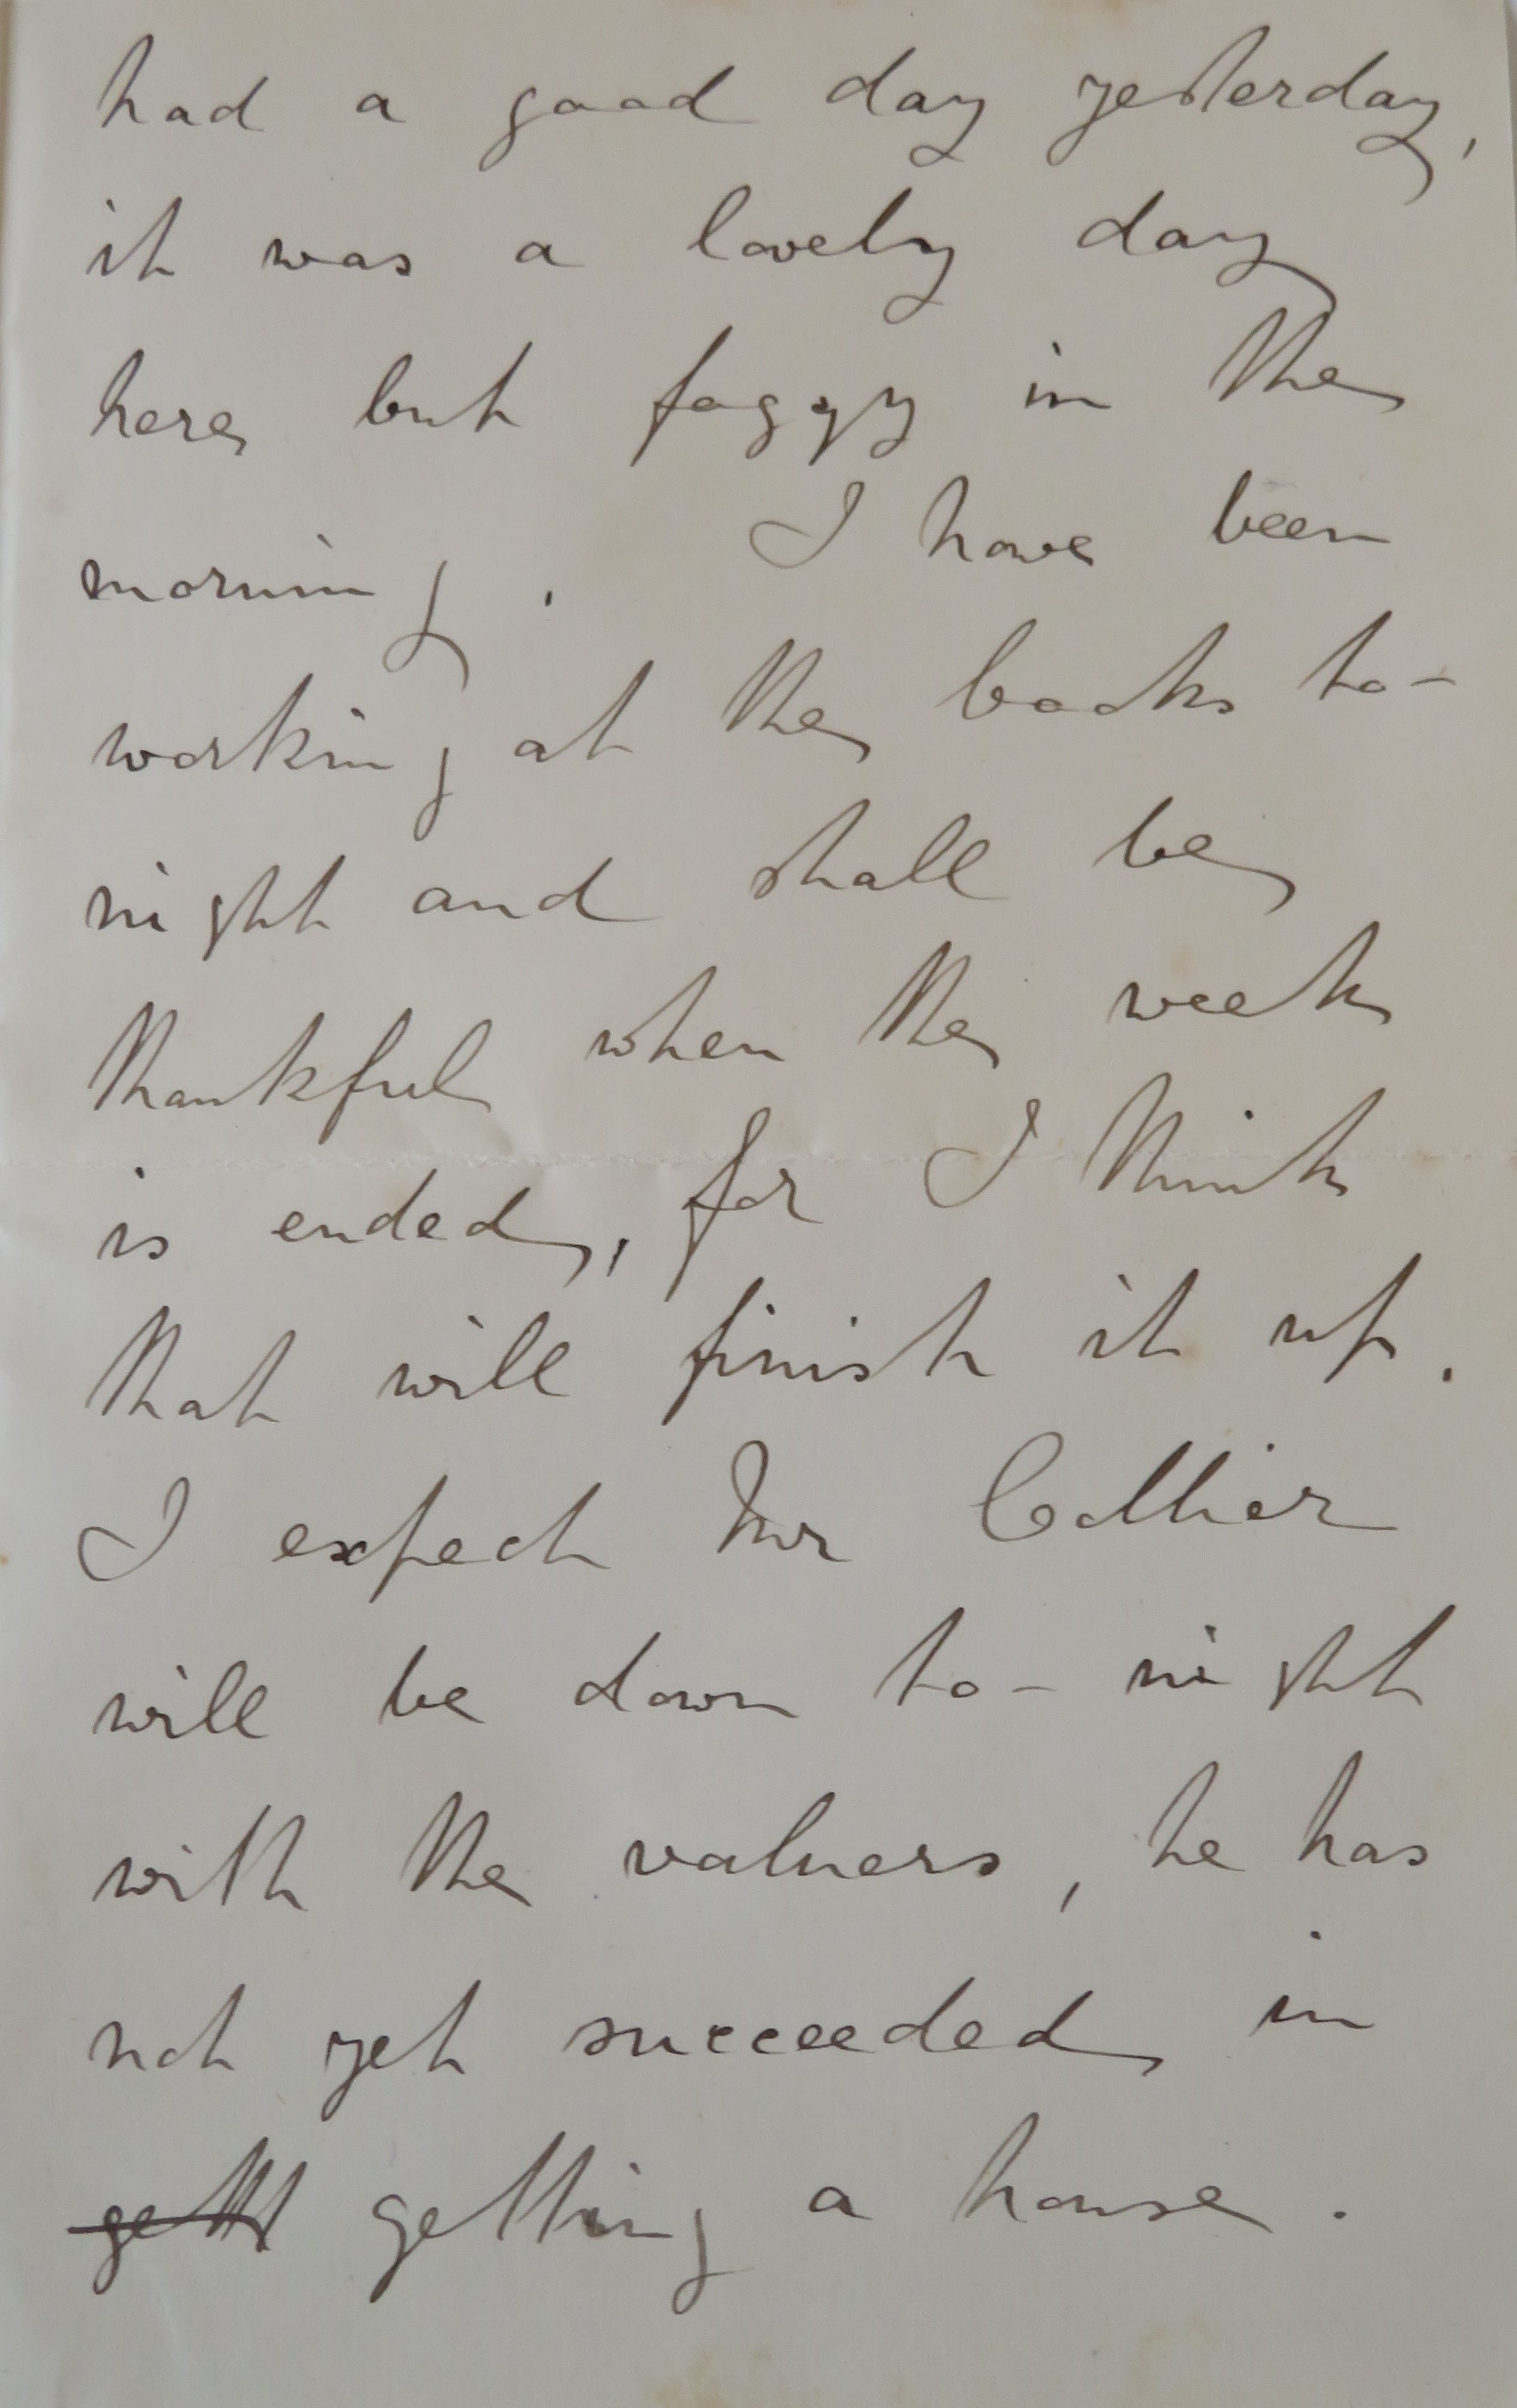 had a good day yesterday,
it was a lovely day
here but foggy in the
morning. I have been
working at the books to-
night and shall be
thankful when the week
is ended, for I think
that will finish it up.
I expect Mr Collier
will be down to-night
with the valuers, he has
not yet succeeded in
gett getting a house.